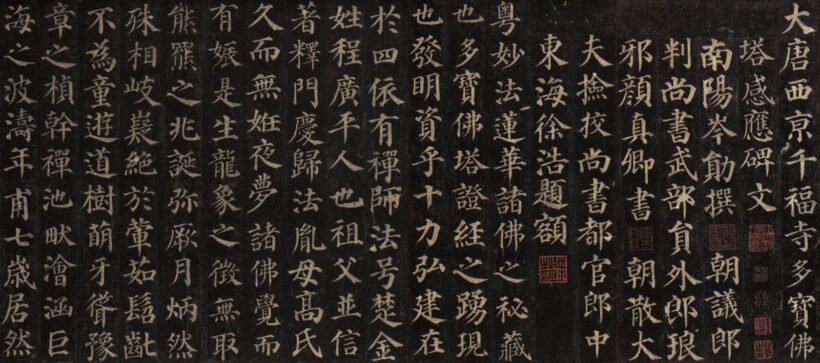 大唐西京千福寺多寶佛
塔感應碑文
南陽岑勛撰 朝議郎
判尚書武部員外郎琅
邪顏真卿書 朝散大
夫撿挍尚書都官郎中
東海徐浩題額
粵妙法蓮華諸佛之秘藏
也多寶佛塔證經之踴現
也發明資乎十力弘建在
於四依有禪師法号楚金
姓程廣平人也祖父並信
著釋門慶歸法胤母高氏
久而無妊夜夢諸佛覺而
有娠是生龍象之徵無取
熊羆之兆誕弥厥月炳然
殊相岐嶷絕於葷茹髫齔
不為童遊道樹萌牙聳豫
章之楨幹禪池畎澮涵巨
海之波濤年甫七歲居然